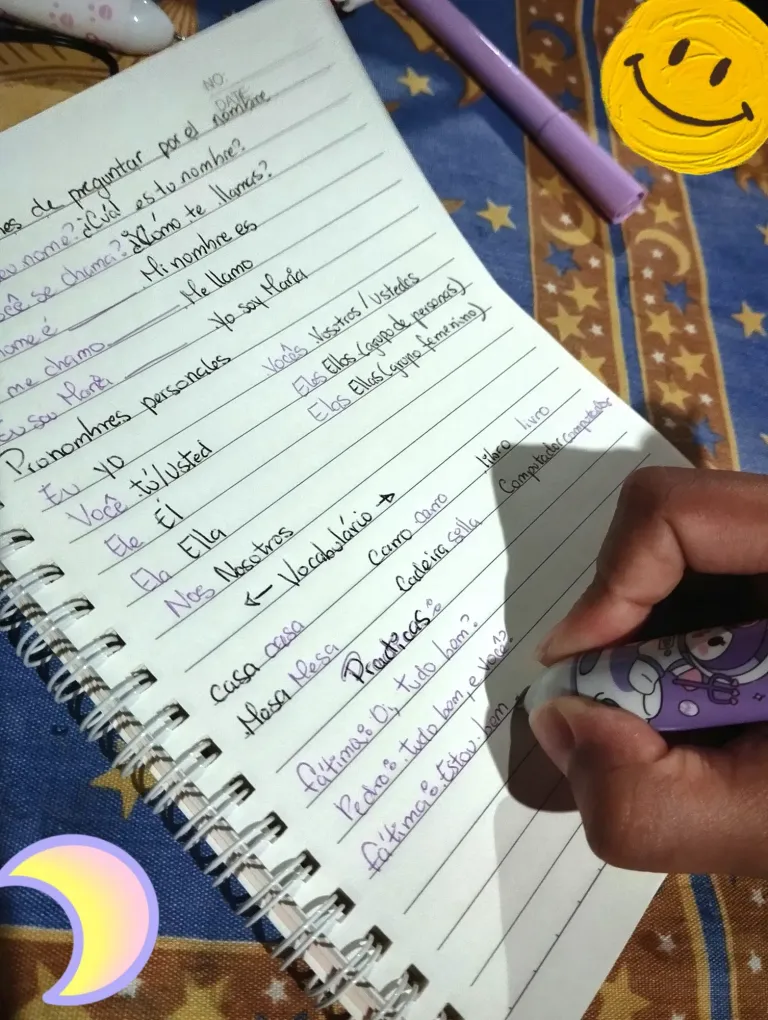 NO:
DATE
es de preguntar por el nombre
eu nome? ¿Cuál es tu nombre?
ocê se chama? ¿Cómo te llamas?
nome é ______ Mi nombre es
me chamo ______ Me llamo
Eu sou María ______ Yo soy María
Pronombres personales
Eu yo
Você tú/Usted
Ele Él
Ela Ella
Nos Nosotros
Vocês Vosotros/Ustedes
Eles Ellos (grupo de personas)
Elas Ellas (grupo femenino)
← Vocabulário →
casa casa
Mesa Mesa
Carro carro
Cadeira silla
libro livro
Computador computador
Practicas:
Fátima: Oi, tudo bem?
Pedro: tudo bem, e você?
Fátima: Estou bem